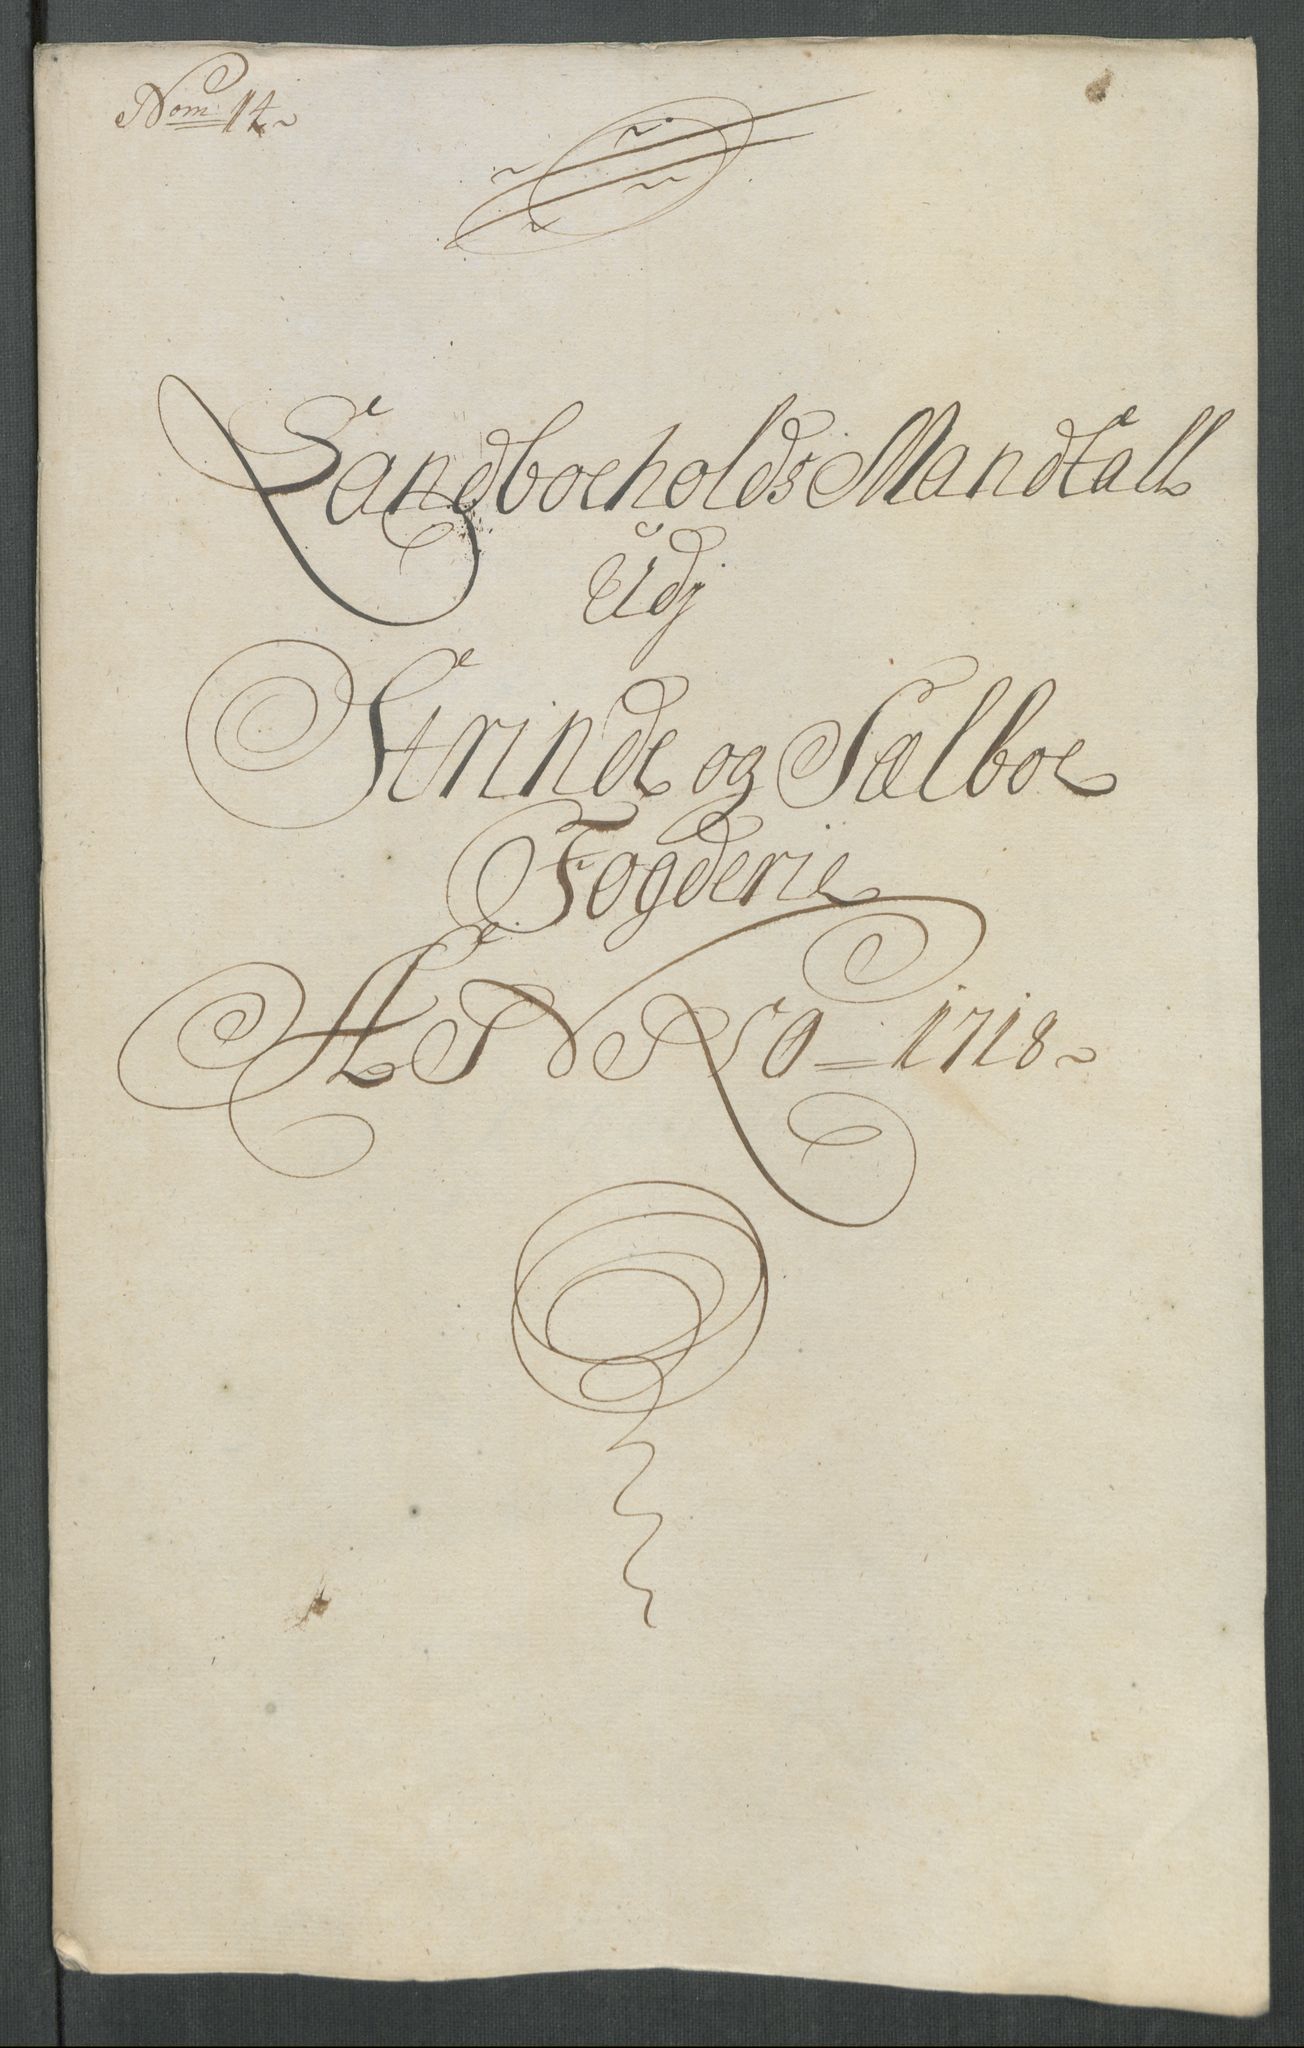 Nom 14
Landboeholds Mandtall
Udj
Strinde og Sælboe
Fogderie
ANNO = 1718